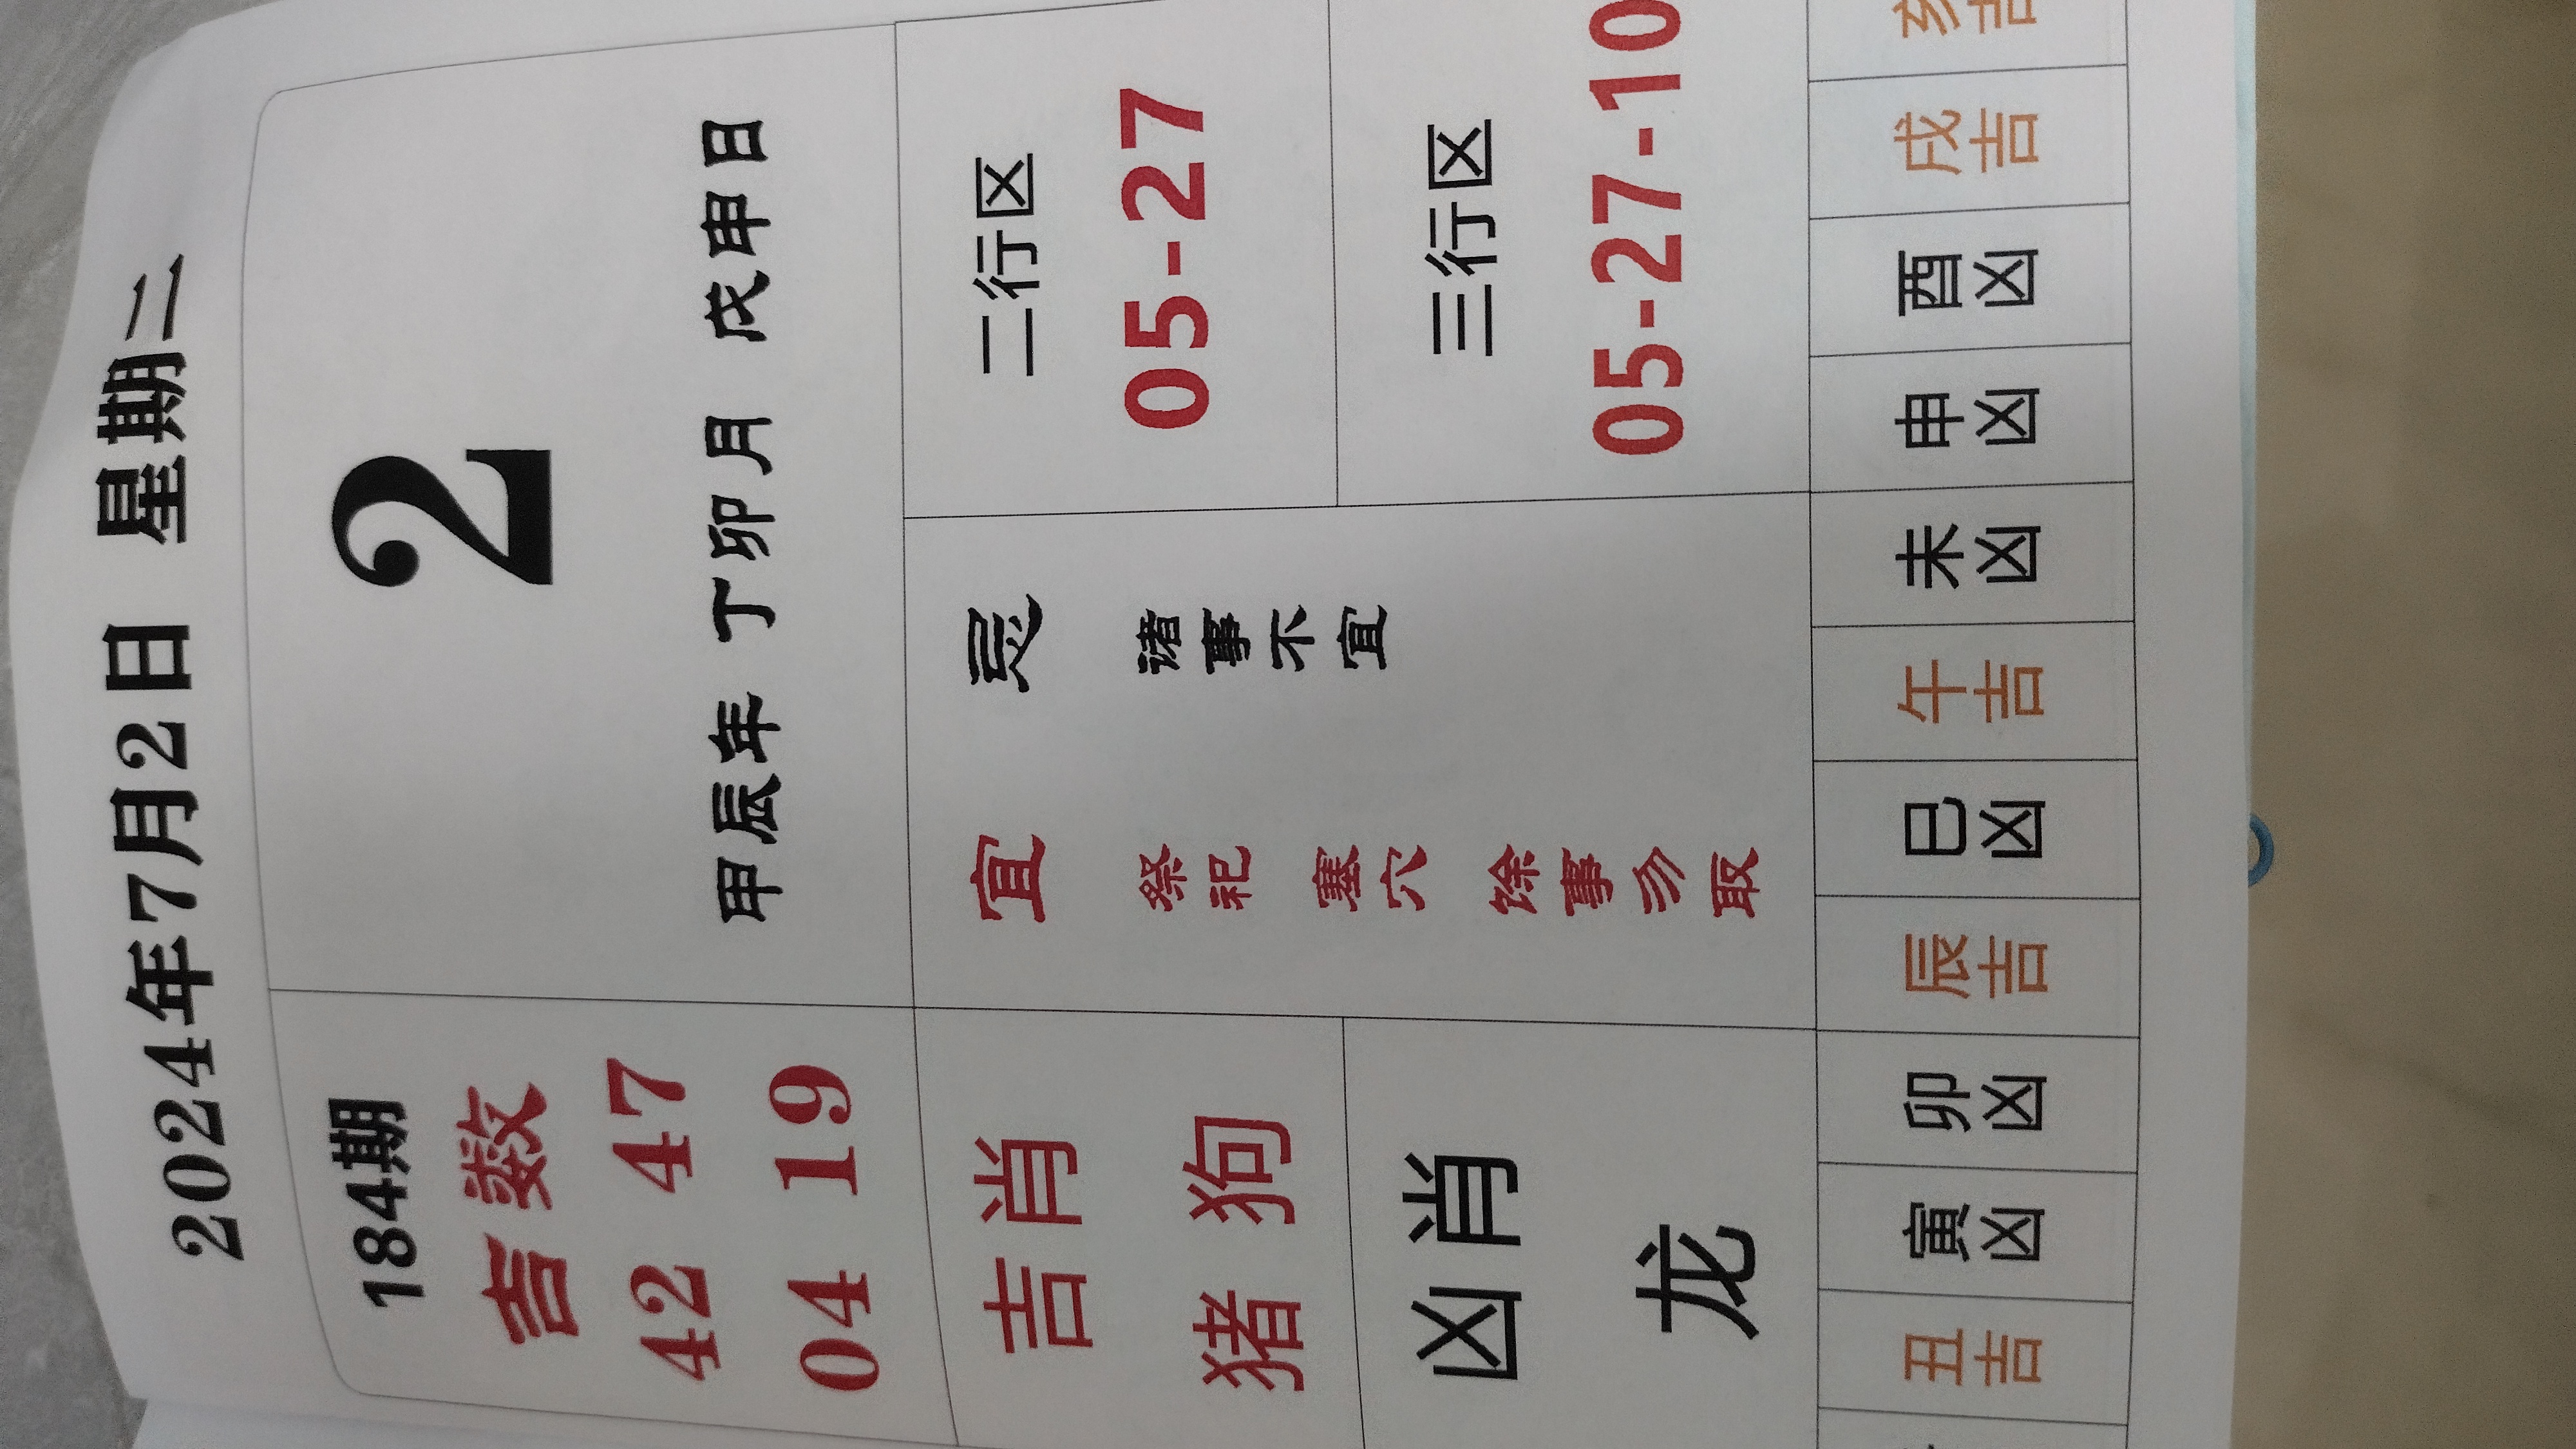 2024年7月2日 星期二
184期
吉数
42 47
04 19
2
甲辰年 丁卯月 戊申日
吉肖
猪 狗
凶肖
龙
宜
祭祀 塞穴 馀事勿取
忌
诸事不宜
二行区
05-27
三行区
05-27-10
丑 寅 卯 辰 巳 午 未 申 酉 戌 亥
吉 凶 凶 吉 凶 吉 凶 凶 凶 吉 吉